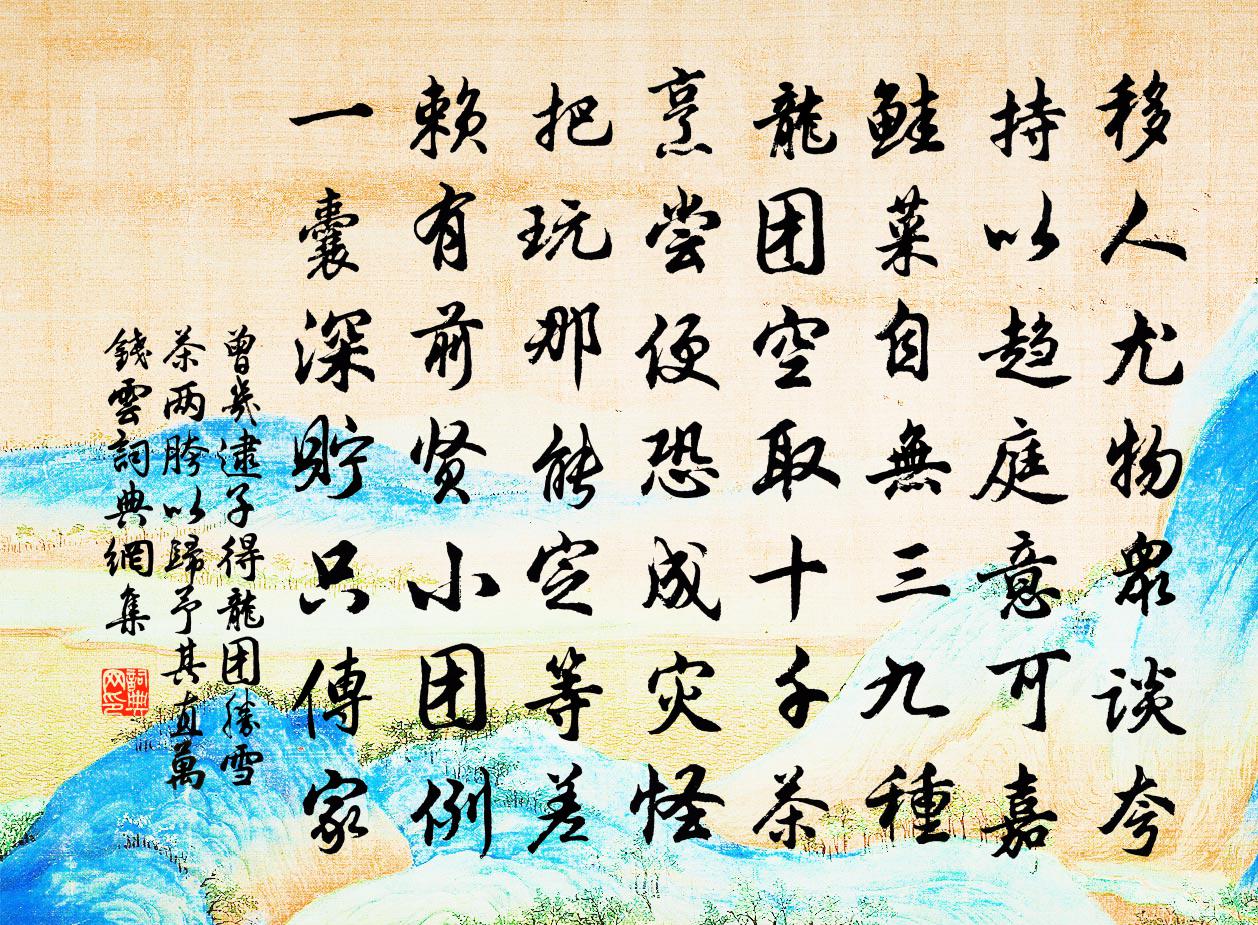 移人尤物眾谈夸
持以趋庭意可嘉
鮭菜自無三九種
龍团空取十千茶
烹尝便恐成灾怪
把玩那能定等差
赖有前贤小团例
一囊深貯只傳家
曾幾逮子得龍团勝雪
茶两胯以歸予其直萬
錢雲詞典網集
詞典网印